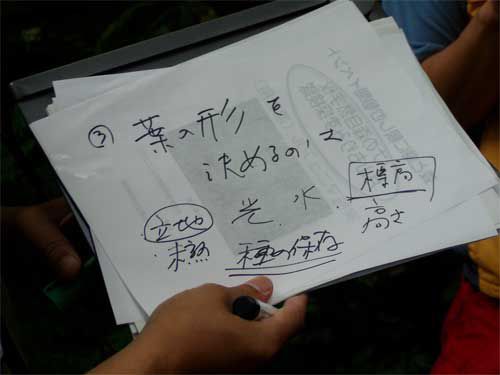 ③ 葉の形を
決めるのは
光.水.標高
立地 高さ
種の保存